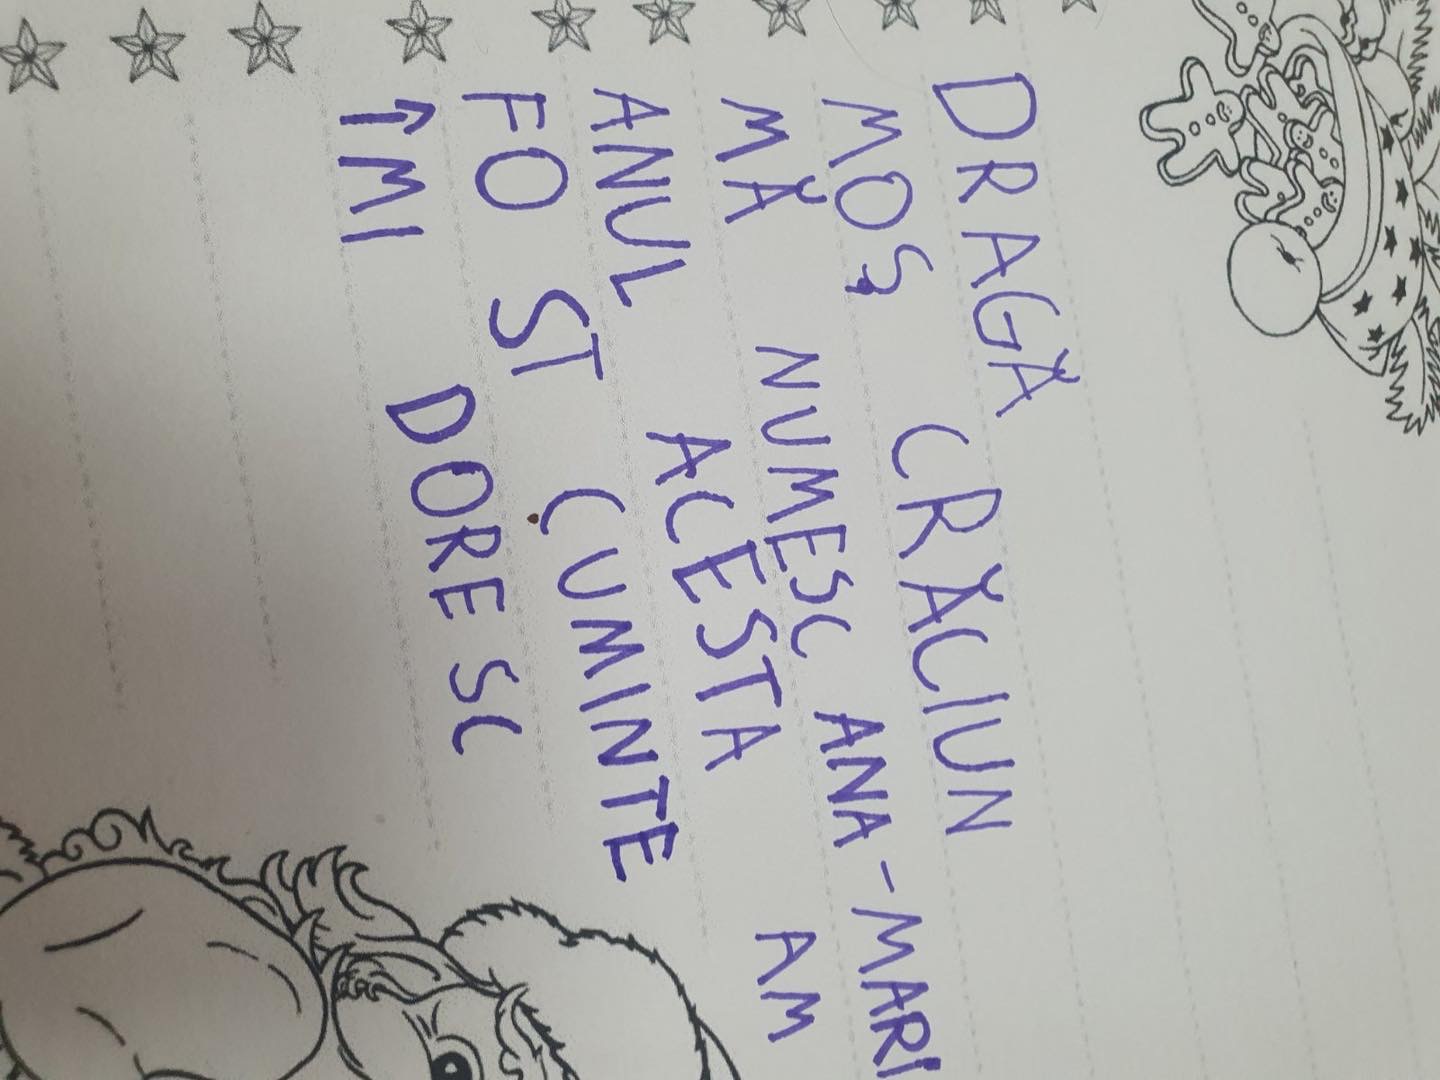 DRAGĂ
MOȘ CRĂCIUN
MĂ NUMESC ANA-MARI
ANUL ACESTA AM
FOST CUMINTE
ÎMI DORESC